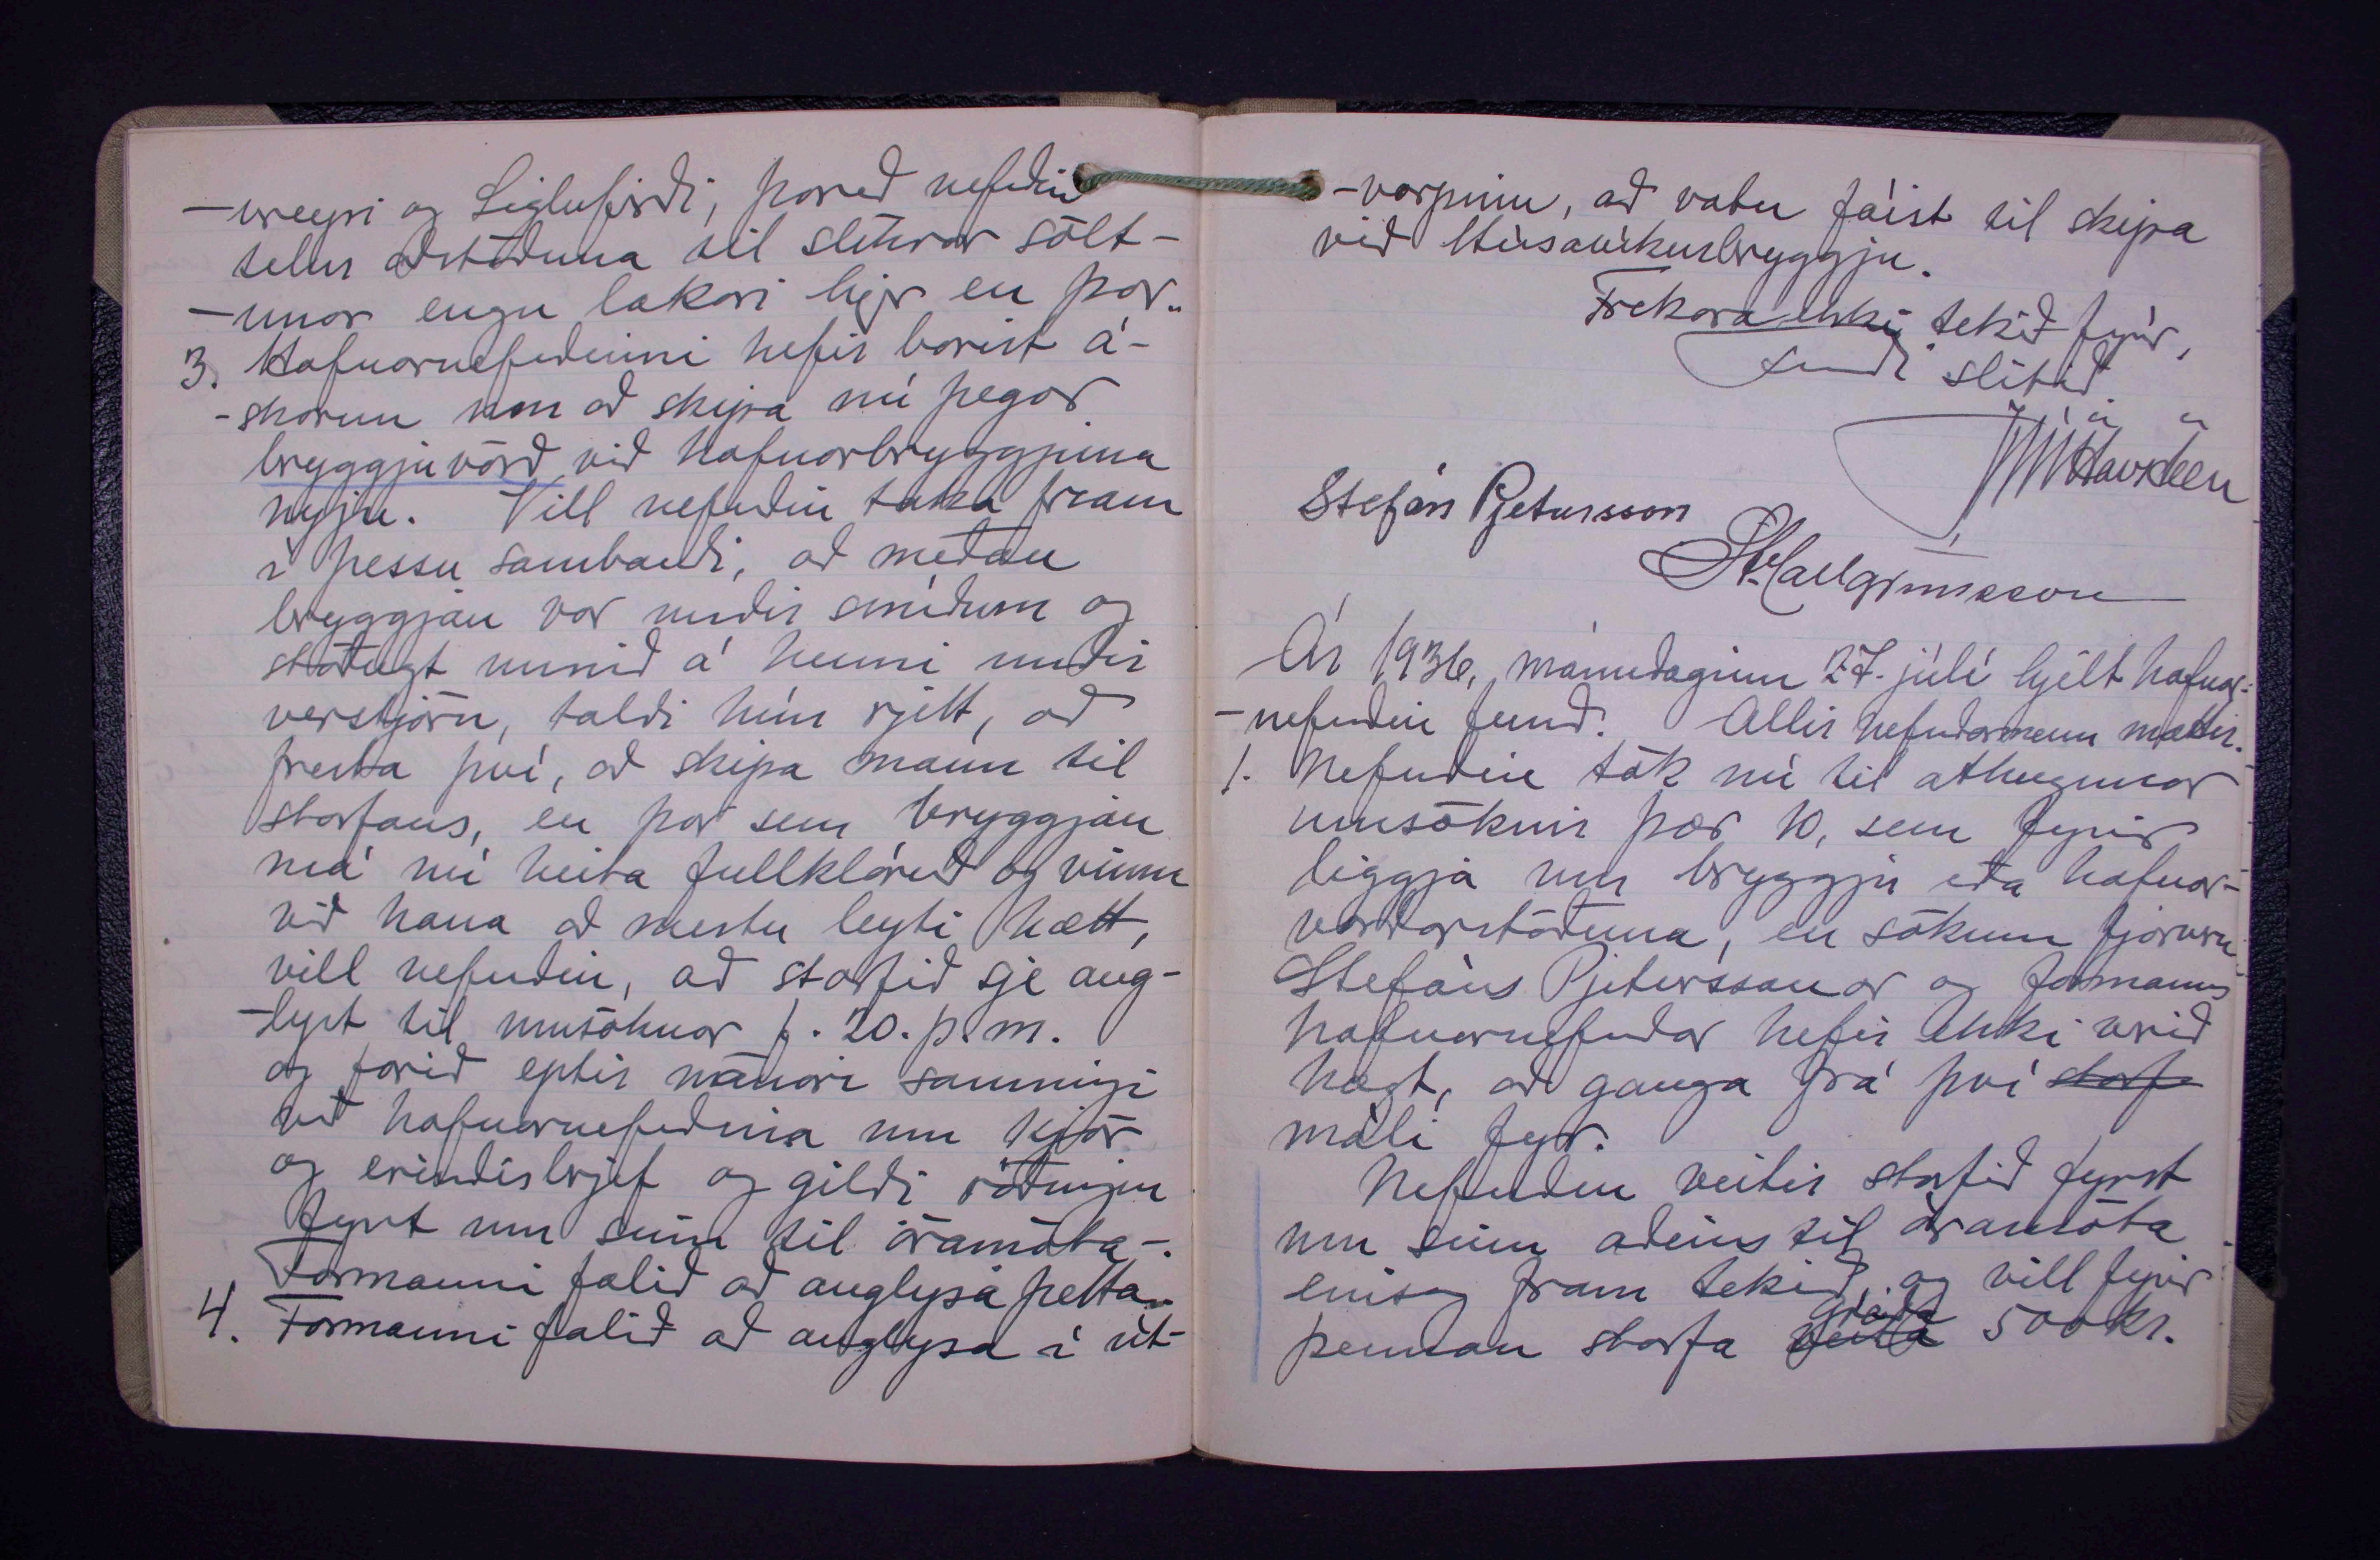 -ureyri og Siglufirði, þareð nefndin
telur aðstöðuna til síldar sölt-
-unar engu lakari hjer en þar.
3. Hafnarnefndinni hefir borist á-
-skorun um að skipa nú þegar
bryggjuvörð við hafnarbryggjuna
nýju. Vill nefndin taka fram
í þessu sambandi, að meðan
bryggjan var undir smíðum og
stöðugt unnið á henni undir
verkstjórn, taldi hún rjett, að
fresta því, að skipa mann til
starfans, en þar sem bryggjan
má nú heita fullkláruð og vinnu
við hana að mestu leyti hætt,
vill nefndin, að starfið sje aug-
-lýst til umsóknar f. 20. þ.m.
og farið eptir nánari samningi
við hafnarnefndina um kjör
og erindisbrjef og gildi ráðningin
fyrst um sinn til áramóta.
Formanni falið að auglýsa þetta.
4. Formanni falið að auglýsa í út-
-varpinu, að vatn fáist til skipa
við Húsavíkurbryggju.
Frekara ekki tekið fyrir,
fundi slitið
Havsteen
Stefán Pjetursson
St. Hallgrímsson
Ár 1936, mánudaginn 27. júlí hjelt hafnar-
-nefndin fund. Allir nefndarmenn mættir.
1. Nefndin tók nú til athugunar
umsóknir þær 10, sem fyrir
liggja um bryggju eða hafnar-
varðarstöðuna, en sökum fjarveru
Stefáns Pjeturssonar og formanns
hafnarnefndar hefir ekki verið
hægt, að ganga frá því starf
máli fyr.
Nefndin veitir starfið fyrst
um sinn aðeins til áramóta
eins og fram tekið, og vill fyrir
greiða
þennan starfa veita 500 kr.